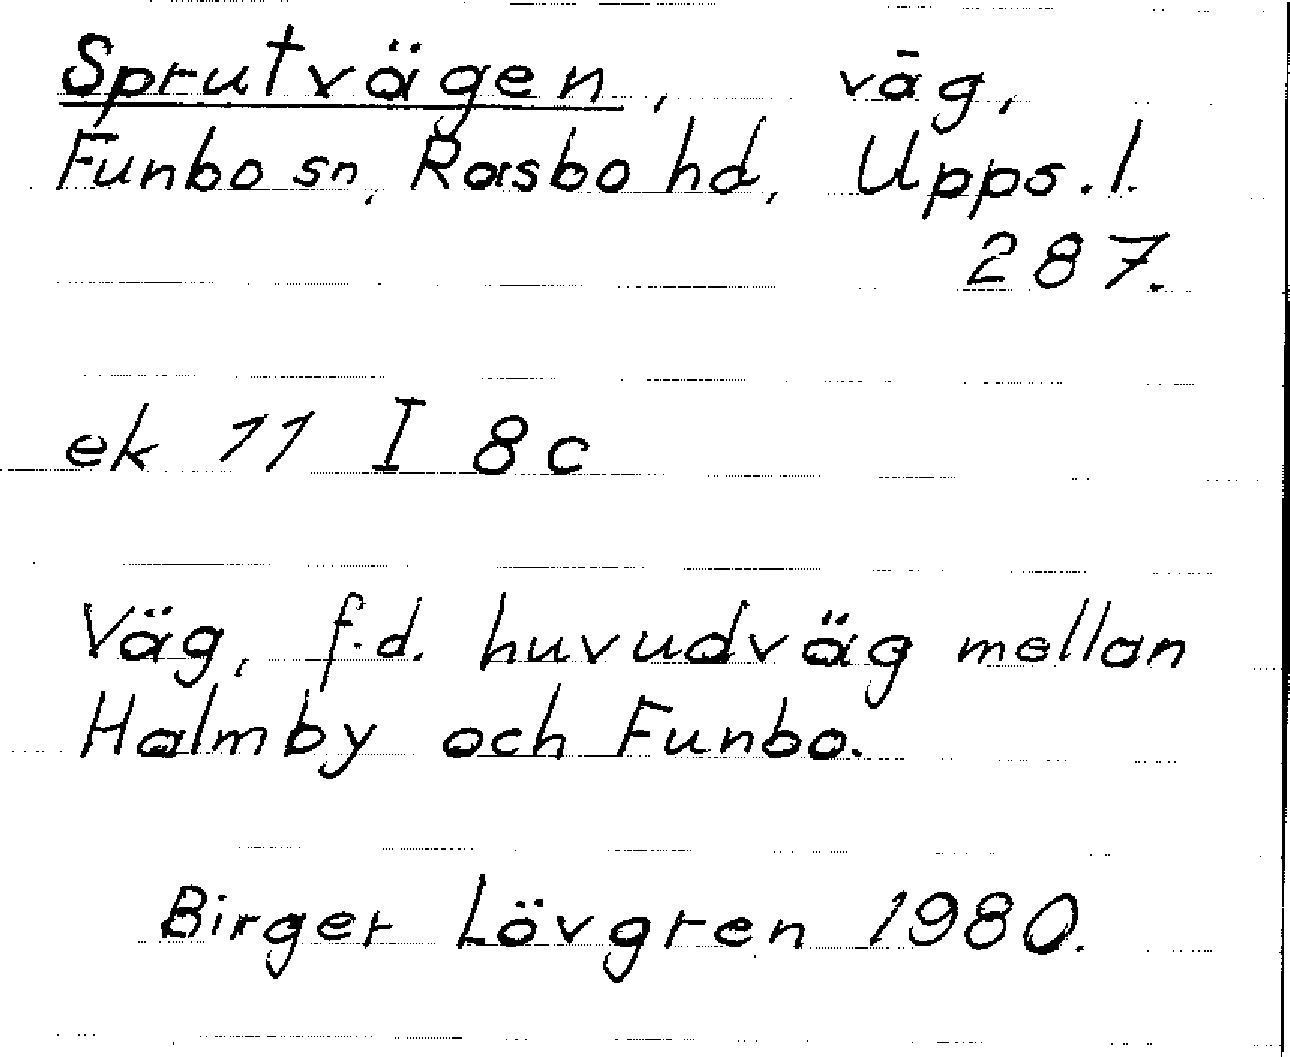 Sprutvägen, väg,
Funbo sn, Rasbo hd, Upps. l.
287.
ek 11 I 8c
Väg, f.d. huvudväg mellan
Halmby och Funbo.
Birger Lövgren 1980.